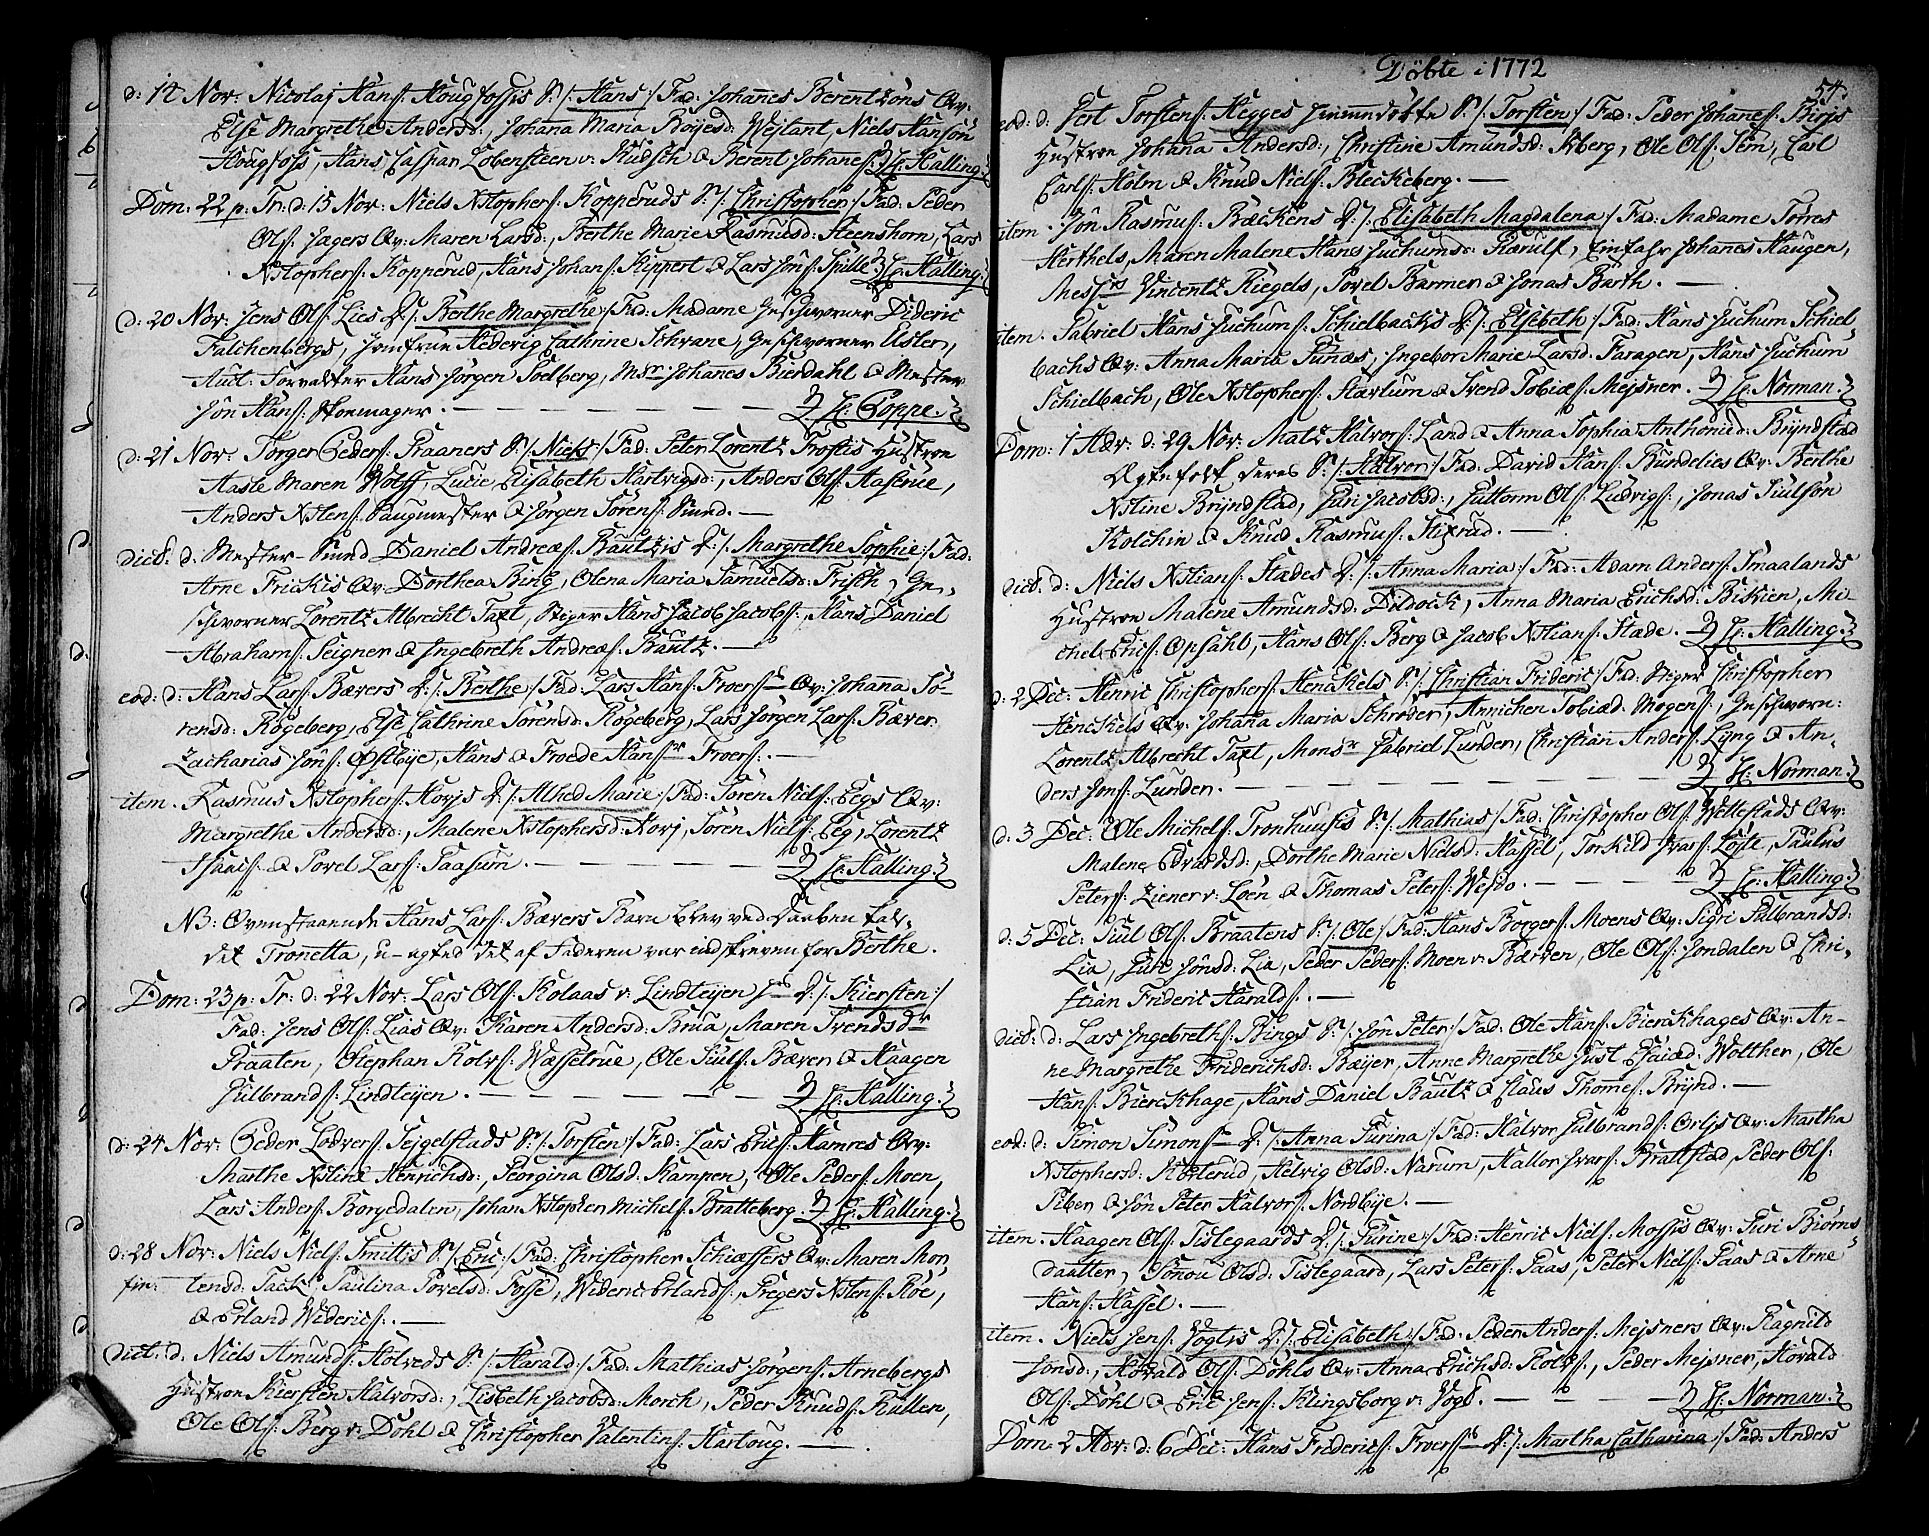 d: 14 Nov: Nicolaj Hans: Hougfosses S:/: Hans:/ Fad: Johannes Berentzøns Qv:
Else Margrethe Andersd:, Johana Maria Bøyesd: Wejlant, Niels Hansøn
Hougfoss, Hans Caspar Lobensteen v: Hüdsch & Berent Johanes: Hr: Halling.
Dom: 22 p: Tr: d: 15 Nov: Niels Xstophers: Kopperuds S:/: Christopher:/ Fad: Peder
Ols: Jagers Qv: Maren Larsd:, Berthe Marie Rasmusd: Steenshorn, Lars
Xstophers: Kopperud, Hans Johans: Kippert & Lars Jøns: Spille. Hr: Halling.
d: 20 Nov: Jens Ols: Lies D:/: Berthe Margrethe:/ Fad: Madame Geschworner Dideric
Falchenbergs, Jomfrue Hedevig Cathrine Schrane, Geschworner Elster,
Aut: Forvalter Hans Jørgen Soelberg, Msr: Johanes Bierdahl & Mester
Jøn Hans: Skomager. — Hr: Poppe.
d: 21 Nov: Torger Peders: Praaners S:/: Niels:/ Fad: Peter Lorentz Trostis Hustroe
Aasle Maren Wolff, Lucie Elisabeth Hartvigsd:, Anders Ols: Aaserue,
Anders Xstens: Saugmester & Jørgen Sørens: Smed. —
dict: d: Mester-Smed Daniel Andreæs: Bautzis D:/: Margrethe Sophie:/ Fad:
Arne Frickis Qv: Dorthea Bing, Olena Maria Samuelsd: Frish, Ge-
schworner Lorentz Albrecht Taxt, Stiger Hans Jacob Jacobs:, Hans Daniel
Abrahams: Seigner & Ingebreth Andreæs: Bautz. —
eod: d: Hans Lars: Bævers D:/: Berthe:/ Fad: Lars Hans: Froers: Qv: Johanna Sø-
rensd: Røgeberg, Else Cathrine Sørensd: Røgeberg, Lars Jørgen Lars: Bæver
Zacharias Jøns: Opsebye, Hans & Froede Hans: Froers:. —
item. Rasmus Xstophers: Korjs D:/: Alhed Marie:/ Fad: Søren Niels: Eegs Qv:
Margrethe Andersd:, Malene Xstophersd: Korj, Søren Niels: Eeg, Lorentz
Isaacs: & Povel Lars: Paasum. — Hr: Halling.
NB: Ovenstaaende Hans Lars: Bævers Barn blev ved Daaben kal-
det Tronetta, u-agted det af Faderen var indskreven for Berthe.
Dom: 23 p: Tr: d: 22 Nov: Lars Ols: Kolaas v: Lindteijen D:/: Kiersten:/
Fad: Jens Ols: Lias Qv: Karen Andersd: Brua, Maren Svendsdr
Braaten, Stephan Rolvs: Wassetrue, Ole Siuls: Bæver & Haagen
Gulbrands: Lindteijen. — Hr: Halling.
d: 24 Nov: Peder Lodvers: Tejgelstads S:/: Torsten:/ Fad: Lars Erics: Hamres Qv:
Marthe Xstine Henrichsd:, Georgina Olsd: Kampen, Ole Peders: Moen,
Lars Anders: Borgedalen, Johan Xstopher Michels: Bratteberg. Hr: Halling.
d: 28 Nov: Niels Niels: Smittis S:/: Eric:/ Fad: Christopher Schiæsers Qv: Maren Mor-
tensd: Tack, Paulina Povelsd: Fosse, Wideric Erlands:, Gregers Xstens: Roe,
& Erland Widerics:. —
dict: d: Niels Amunds: Holveds S:/: Harald:/ Fad: Mathias Jørgens: Arnebergs
Hustroe Kiersten Halvorsd:, Lisbeth Jacobsd: Morch, Peder Knuds: Rullen,
Ole Ols: Berg v: Dohl & Christopher Valentins: Hartoug. —
Döbte i 1772
54.
eod: d: Gert Torstens: Hegges S:/: Torsten:/ Fad: Peder Johanes: Birjs
Hustroe Johana Andersd:, Christine Amundsd: Aberg, Ole Ols: Sem, Carl
Carls: Holm & Knud Niels: Bleckeberg. —
item. Jøn Rasmus: Bæckens D:/: Elisabeth Magdalena:/ Fad: Madame Torres
Herthels, Maren Malene Hans Juchumsd: Karulf, Einfahr Johanes Haugen,
Messrs Vincentz Riegels, Povel Barmer & Jonas Barth. —
item. Gabriel Hans Juchums: Schielbachs D:/: Elsebeth:/ Fad: Hans Juchum Schiel-
bachs Qv: Anna Maria Funæs, Ingebor Marie Larsd: Faragen, Hans Juchum
Schielbach, Ole Xstophers: Stærlum & Svend Tobiæs: Mejsner. Hr: Norman.
Dom: 1 Adv: d: 29 Nov: Matz Halvors: Land & Anna Sophia Anthonid: Bryndstad
Ægtefolk deres S:/: Halvor:/ Fad: David Hans: Bundelies Qv: Berthe
Xstine Bryndstad, Guri Jacobsd:, Guttorm Ols: Ludvigs:, Jonas Siulsøn
Kolchin & Knud Rasmus: Stixrud. —
dict: d: Niels Xstians: Stædes D:/: Anna Maria:/ Fad: Adam Anders: Smaalands
Hustroe Malene Amundsd: Doldock, Anna Maria Erichsd: Biskien, Mi-
chel Erics: Opsahl, Hans Ols: Berg & Jacob Xstians: Stæde. Hr: Halling.
d: 2 Dec: Henric Christophers: Henckels S:/: Christian Frideric:/ Fad: Stiger Christopher
Henckels Qv: Johana Maria Schrøder, Annichen Tobiæd: Mogens:, Geschworn:
Lorentz Albrecht Taxt, Monsr Gabriel Lunder, Christian Anders: Lyng & An-
ders Jens: Lunder. — Hr: Norman.
d: 3 Dec: Ole Michels: Tronhuusis S:/: Mathias:/ Fad: Christopher Ols: Wellestads Qv:
Malene Edvardsd:, Dorthe Marie Nielsd: Hassel, Torkild Ivars: Løyte, Paulus
Peters: Ziener v: Loen & Thomas Peters: Wesbo. — Hr: Halling.
d: 5 Dec: Siul Ols: Braatens S:/: Ole:/ Fad: Hans Borgers: Moens Qv: Sigri Gulbrandsd:
Lia, Guri Jønsd: Lia, Peder Peders: Moen v: Bærven, Ole Ols: Jondalen & Chri-
stian Frideric Haralds:. —
dict: d: Lars Ingebreths: Bings S:/: Jøn Peter:/ Fad: Ole Hans: Bierckhages Qv: An-
ne Margrethe Friderichsd: Beijer, Anne Margrethe Just Esaiæd: Wolther, Ole
Hans: Bierckhage, Hans Daniel Bautz & Claus Thomes: Brynd. —
eod: d: Simon Simons: D:/: Anna Gurina:/ Fad: Halvor Gulbrands: Orljs Qv: Martha
Xstophersd: Kolterud, Helvig Olsd: Narum, Hallor Ivars: Brattstad, Peder Ols:
Piber & Jøn Peter Halvors: Nordbye. —
item. Haagen Ols: Tislegaards D:/: Gurine:/ Fad: Henric Niels: Mossis Qv: Guri Biørns-
daatter, Gonou Olsd: Tislegaard, Lars Peters: Gaas, Peter Niels: Gaas & Arne
Hans: Hassel. —
item. Niels Jens: Vogtjs D:/: Elisabeth:/ Fad: Peder Anders: Mejsners Qv: Ragnild
Jonsd:, Horald Ols: Dohls Qv: Anna Erichsd: Rolfs:, Peder Mejsner, Horald
Ols: Dohl & Eric Jens: Klingsborg v: Vogt. — Hr: Norman.
Dom: 2 Adv: d: 6 Dec: Hans Friderics: Froers: D:/: Martha Catharina:/ Fad: Anders